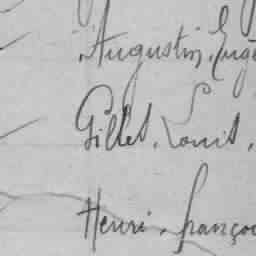 Augustin, Eugè
Gillet, Louis,
Henri, françoi